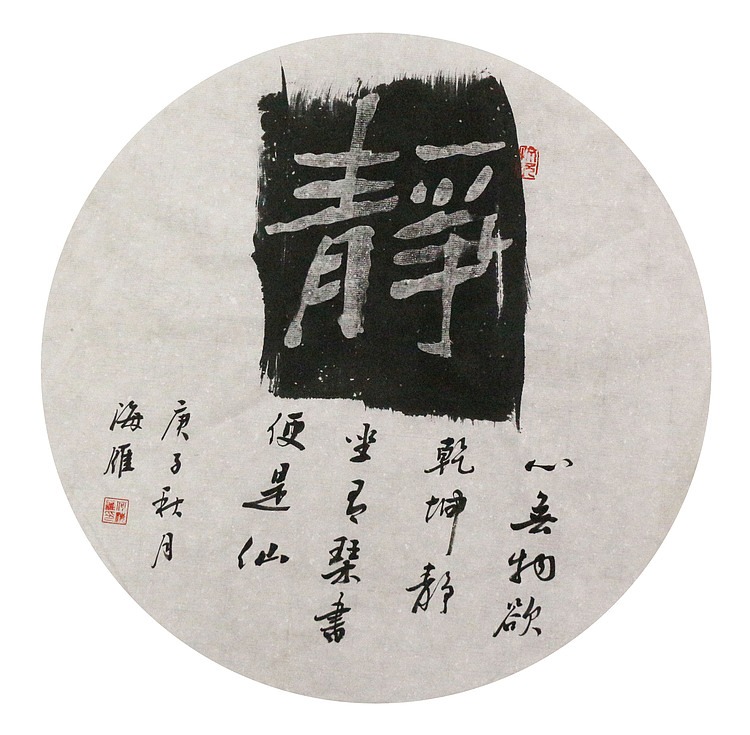 靜
心無物欲
乾坤静
坐有琴書
便是仙
庚子秋月
海雁